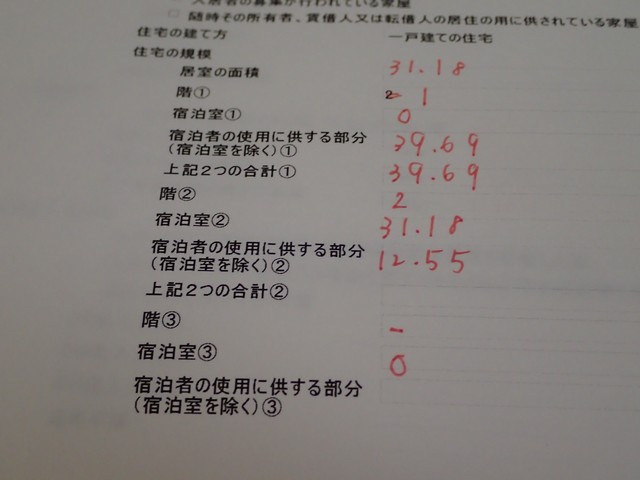 入居者の募集が行われている家屋
□ 随時その所有者、賃借人又は転借人の居住の用に供されている家屋
住宅の建て方 一戸建ての住宅
住宅の規模
居室の面積 31.18
階① 2 1
宿泊室① 0
宿泊者の使用に供する部分
(宿泊室を除く)① 39.69
上記2つの合計① 39.69
階② 2
宿泊室② 31.18
宿泊者の使用に供する部分
(宿泊室を除く)② 12.55
上記2つの合計②
階③ -
宿泊室③ 0
宿泊者の使用に供する部分
(宿泊室を除く)③